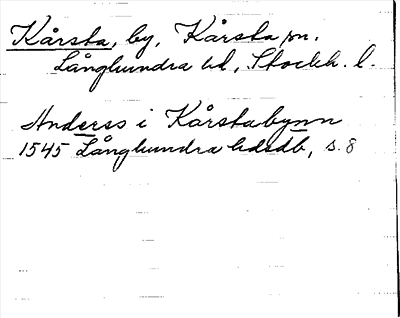 Kårsta, by, Kårsta sn.
Långhundra hd, Stockh. l.
Anderss i Kårstabynn
1545 Långhundra hdsdb, s. 8